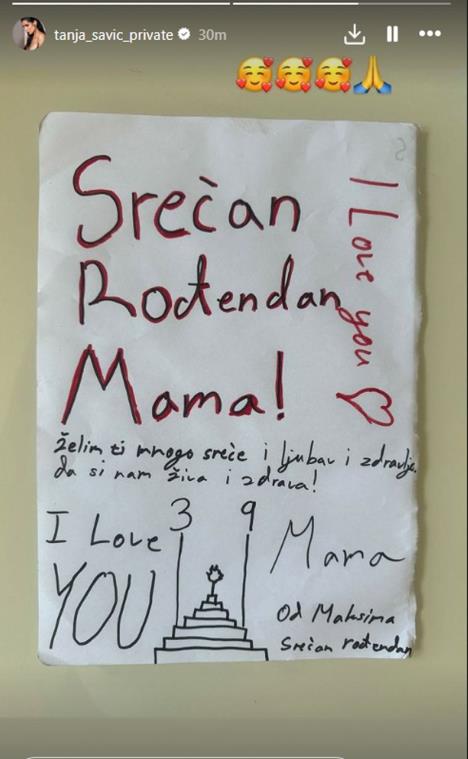 tanja_savic_private 30m
🥰🥰🥰🙏
Srećan
Rođendan
Mama!
I Love you ♡
želim ti mnogo sreće i ljubav i zdravlje.
da si nam živa i zdrava!
3 9
I Love
YOU
Mama
Od Maksima
Srećan rođendan